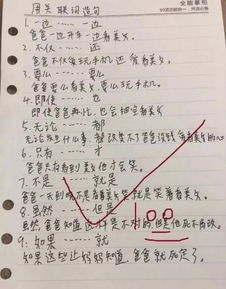 全能掌柜
用关联词造句
1. 一边……一边
爸爸一边开车一边看美女。
2. 不仅……还
爸爸不仅爱玩手机还爱看美女。
3. 要么……要么
爸爸要么看美女，要么玩手机。
4. 即使……也
即使爸爸再忙，也会
看美女
5. 无论……都
无论发生什么事，都改变不了爸爸
看美女的心
6. 只有……才
爸爸只有看到美女他才会笑。
7. 不是……就是
爸爸一天到晚不是看着美女笑就是笑着看美女。
8. 虽然……但是
虽然，爸爸知道这样是不对的，但是他死不悔改。
9. 如果……就
如果这些让妈妈知道，爸爸就死定了。
100